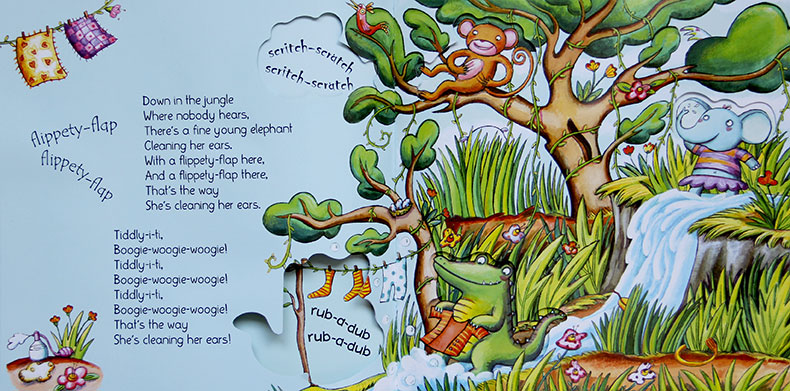 flippety-flap
flippety-flap
Down in the jungle
Where nobody hears,
There's a fine young elephant
Cleaning her ears.
With a flippety-flap here,
And a flippety-flap there,
That's the way
She's cleaning her ears.
Tiddly-i-ti,
Boogie-woogie-woogie!
Tiddly-i-ti,
Boogie-woogie-woogie!
Tiddly-i-ti,
Boogie-woogie-woogie!
That's the way
She's cleaning her ears!
scritch-scratch
scritch-scratch
rub-a-dub
rub-a-dub